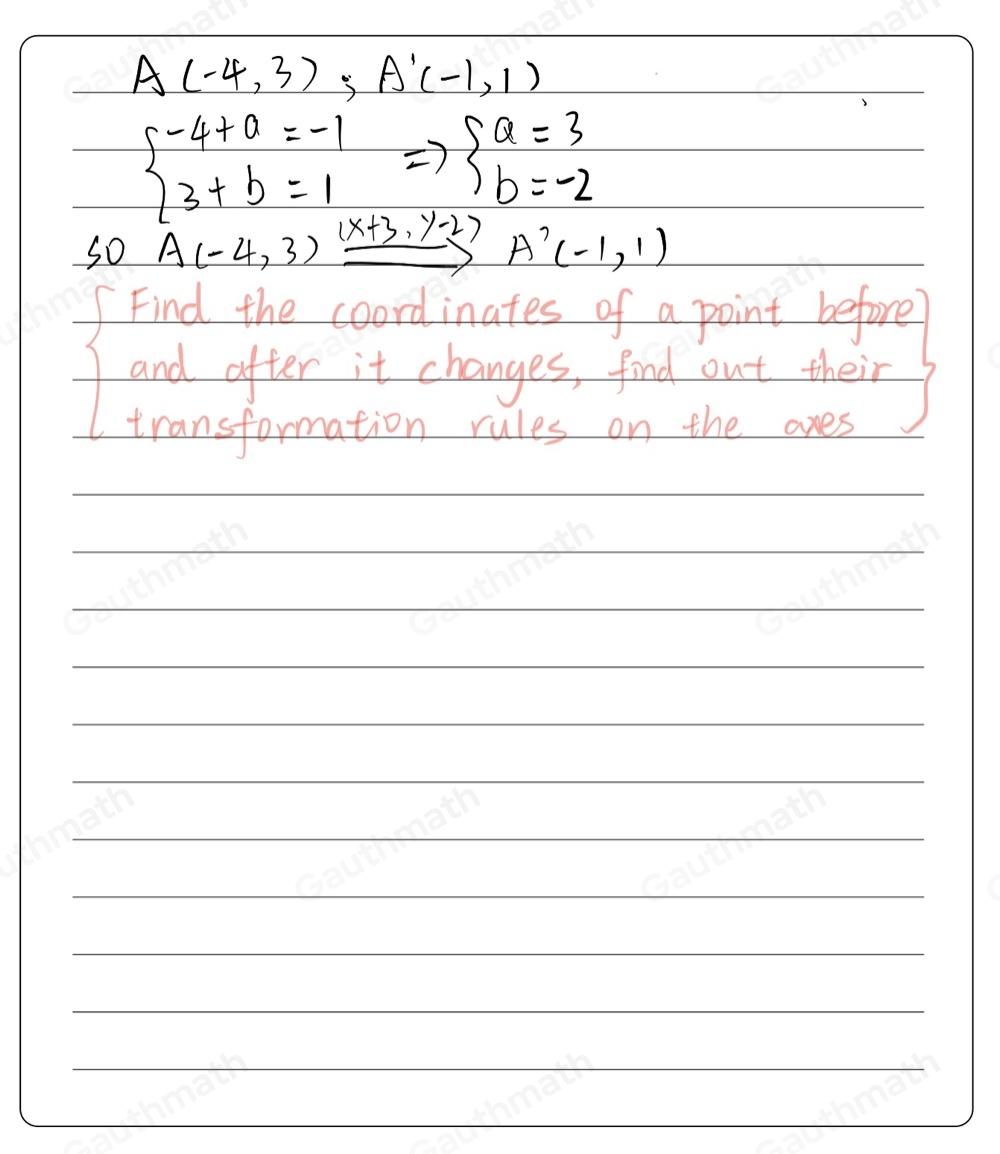 A(-4,3); A'(-1,1)
{-4+a=-1
3+b=1 => {a=3
b=-2
so A(-4,3) (x+3, y-2) => A'(-1,1)
{Find the coordinates of a point before
and after it changes, find out their
transformation rules on the axes}
Gauthmath